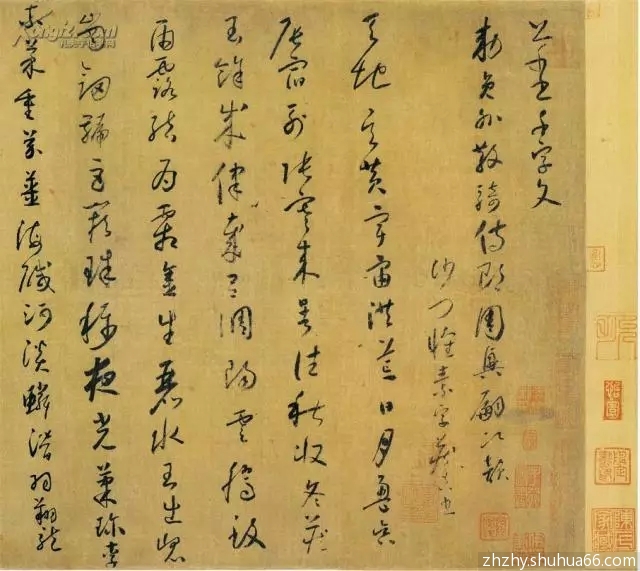 千字文
敕員外散騎侍郎周興嗣次韻
沙門懷素字藏真書
天地玄黃宇宙洪荒日月盈昃
辰宿列張寒來暑往秋收冬藏
閏餘成歲律呂調陽雲騰致
雨露結為霜金生麗水玉出崑
崗劍號巨闕珠稱夜光菓珎李
柰菜重芥薑海鹹河淡鱗潛羽翔龍
zhzhy.shuhua66.com